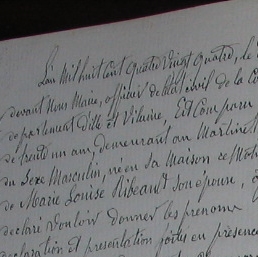 L'an mil huit cent quatre vingt quatre, le
devant Nous Maire, officier de l'état civil de la Co
département d'Ille et Vilaine, Est Comparu
de trente un ans, demeurant au Martinet
du Sexe Masculin, né en Sa Maison ce Mat
de Marie Louise Ribeault Son épouse,
déclaré Vouloir Donner les prenoms
déclaration et presentation faites en presence